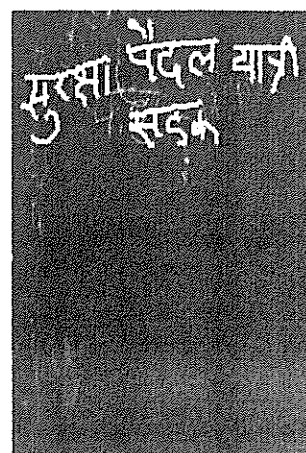 सुरक्षा पैदल यात्री
सड़क